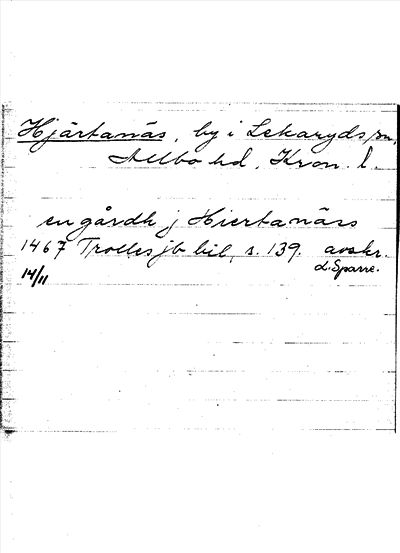 Hjärtanäs, by i Lekaryds sn,
Allbo hd, Kron. l.
en gårdh j Hiertanäss
1467 Trolles jb bil, s. 139. avskr.
14/11 L. Sparre.